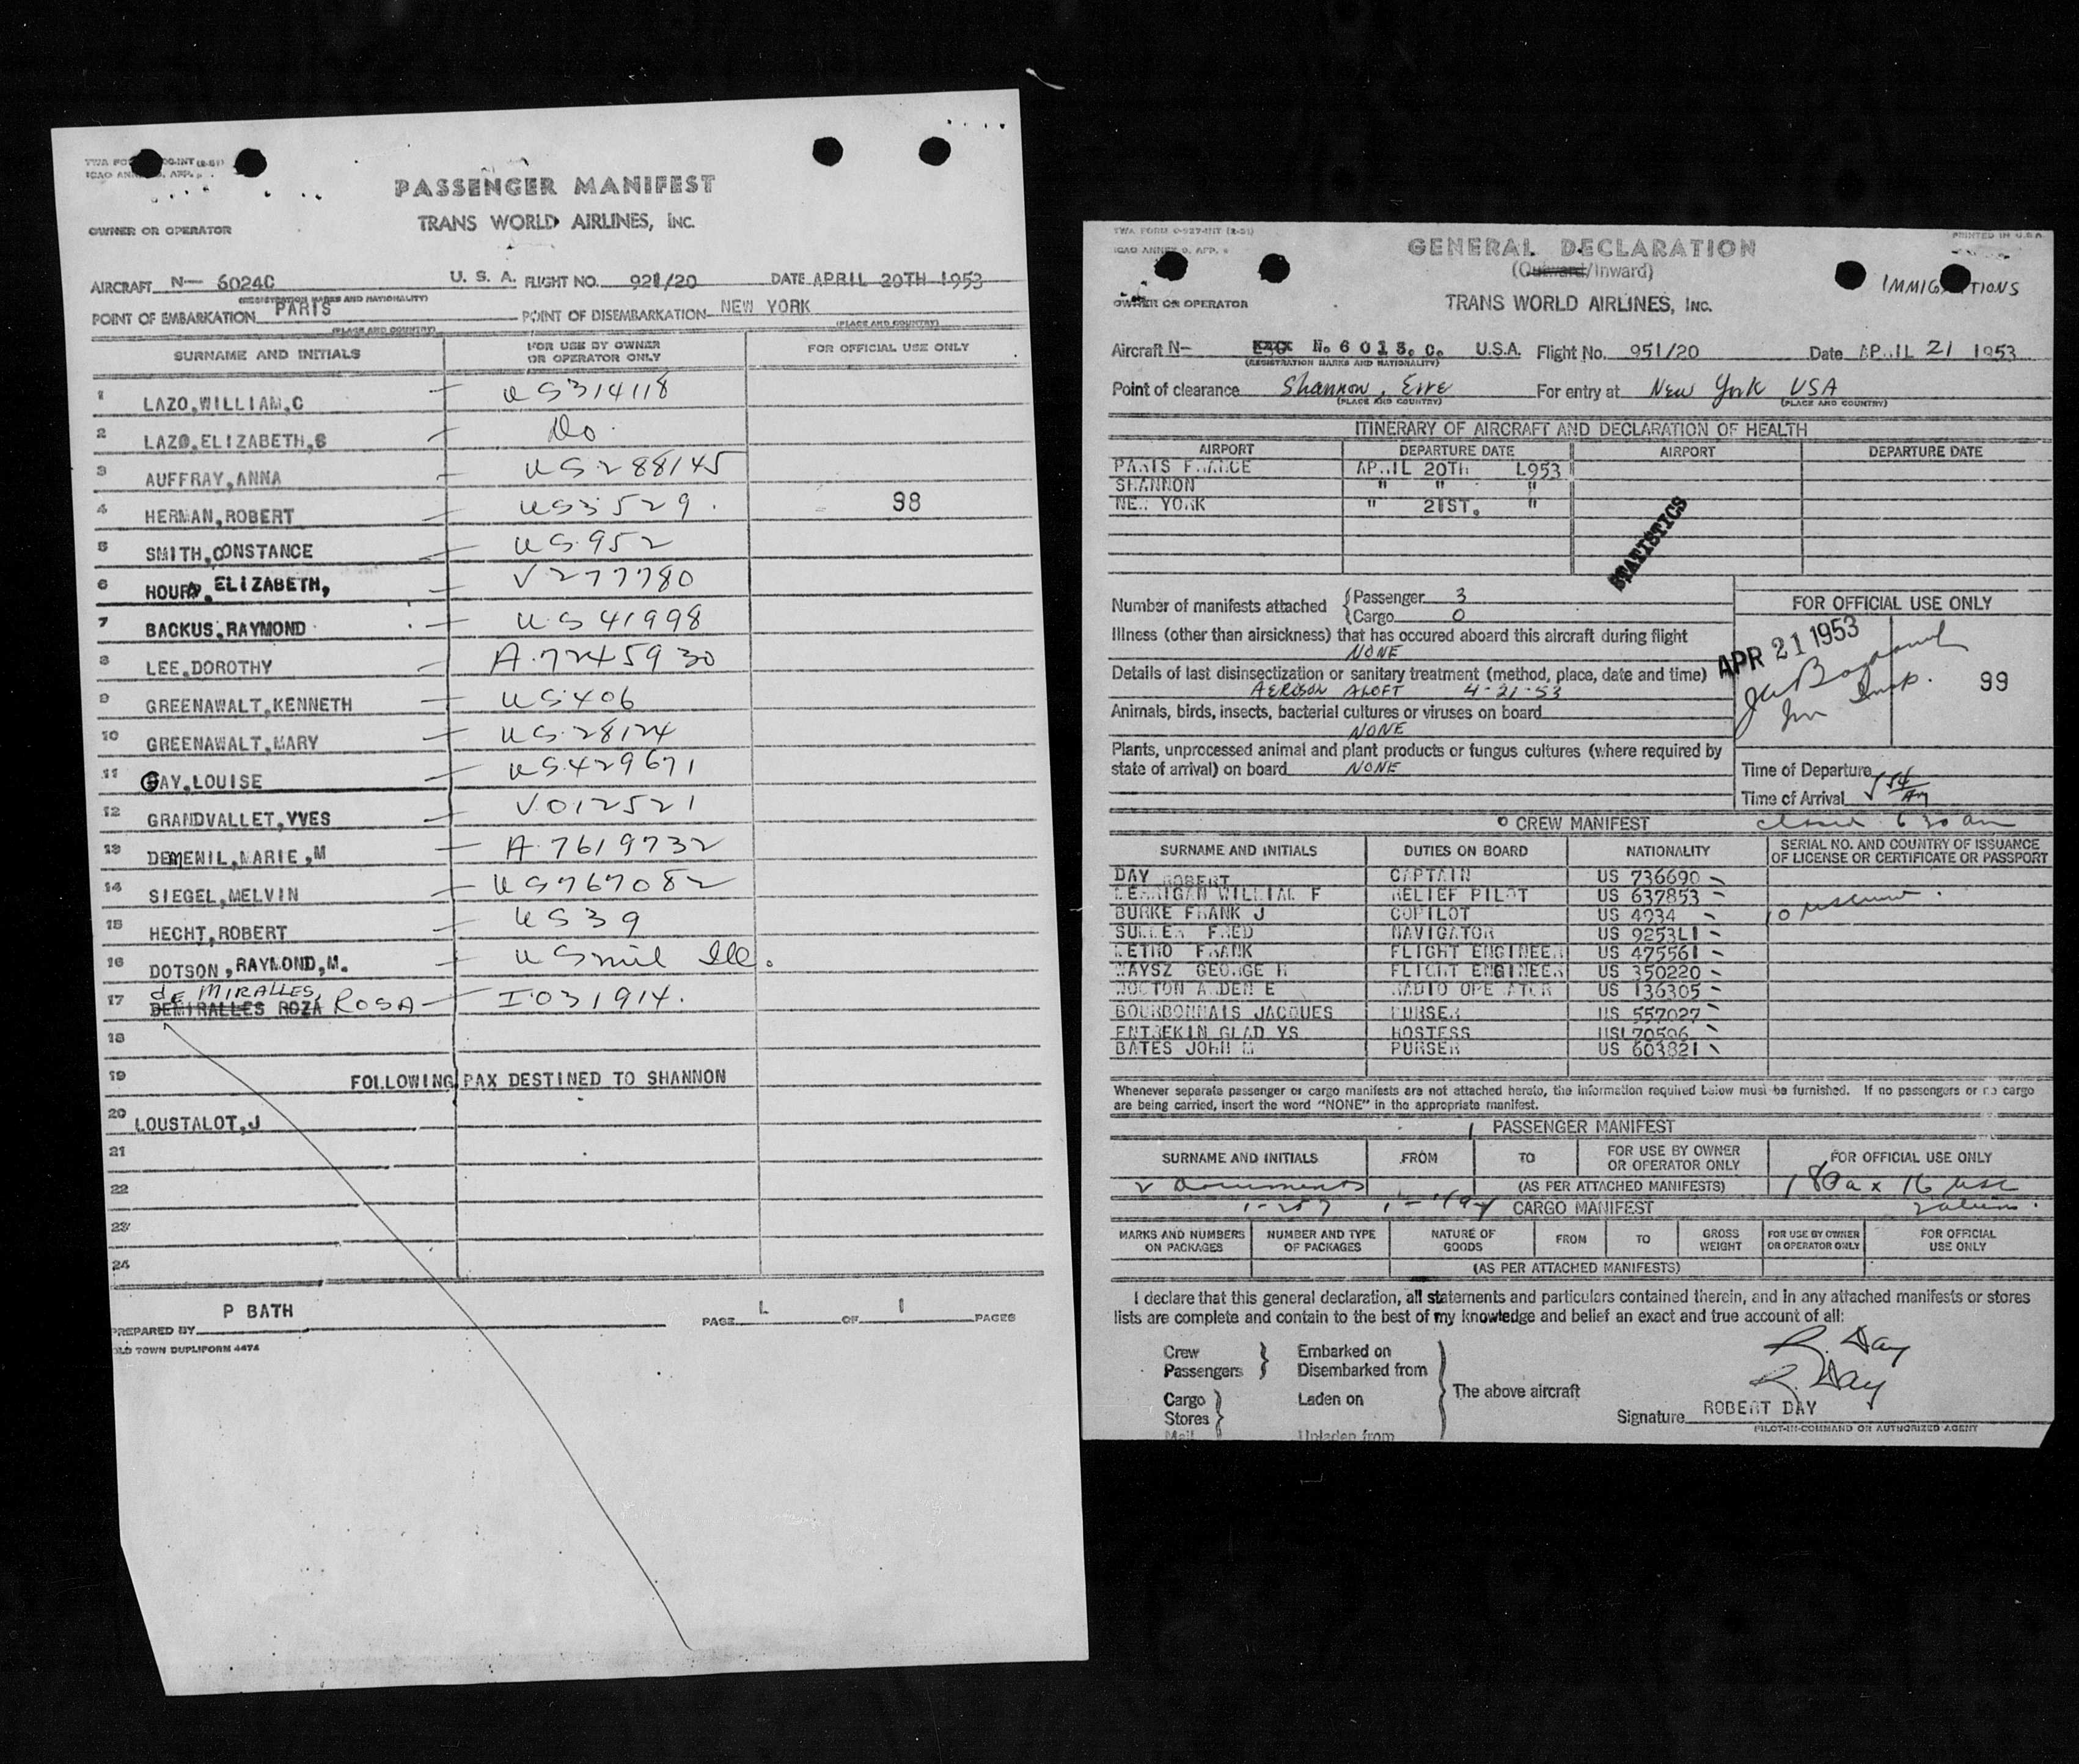 PASSENGER MANIFEST
TRANS WORLD AIRLINES, INC.
OWNER OR OPERATOR
AIRCRAFT N— 6024C U. S. A. FLIGHT NO. 921/20 DATE APRIL 20TH 1953
(REGISTRATION MARKS AND NATIONALITY)
POINT OF EMBARKATION PARIS POINT OF DISEMBARKATION NEW YORK
(PLACE AND COUNTRY) (PLACE AND COUNTRY)
SURNAME AND INITIALS FOR USE BY OWNER OR OPERATOR ONLY FOR OFFICIAL USE ONLY
1 LAZO,WILLIAM,C — US314118
2 LAZO,ELIZABETH,S — Do.
3 AUFFRAY,ANNA — US288145
4 HERMAN,ROBERT — US3529. 98
5 SMITH,CONSTANCE — US.952
6 ELIZABETH, — V277780
7 BACKUS,RAYMOND — US41998
8 LEE,DOROTHY — A.7245930
9 GREENAWALT,KENNETH — US406
10 GREENAWALT,MARY — US.28124
11 GAY,LOUISE — US429671
12 GRANDVALLET,YVES — V012521
13 DEMENIL,MARIE,M — A.7619732
14 SIEGEL,MELVIN — US767082
15 HECHT,ROBERT — US39
16 DOTSON,RAYMOND,M. — US mil
de MIRALLES,
17 DEMIRALLES ROZA ROSA — I.031914.
18
19 FOLLOWING PAX DESTINED TO SHANNON
20 LOUSTALOT,J
21
22
23
24
P BATH
PREPARED BY PAGE 1 OF 1 PAGES
OLD TOWN DUPLIFORM 4474
TWA FORM O-927-INT (2-51) PRINTED IN U.S.A.
GENERAL DECLARATION
(Outward/Inward)
IMMIGRATIONS
OWNER OR OPERATOR TRANS WORLD AIRLINES, INC.
Aircraft N— No 6018. C. U.S.A. Flight No. 951/20 Date APRIL 21 1953
(REGISTRATION MARKS AND NATIONALITY)
Point of clearance Shannon, Eire For entry at New York USA
(PLACE AND COUNTRY) (PLACE AND COUNTRY)
ITINERARY OF AIRCRAFT AND DECLARATION OF HEALTH
AIRPORT DEPARTURE DATE AIRPORT DEPARTURE DATE
PARIS FRANCE APRIL 20TH 1953
SHANNON " " "
NEW YORK " 21ST. "
STATISTICS
Number of manifests attached Passenger 3
Cargo 0
FOR OFFICIAL USE ONLY
Illness (other than airsickness) that has occured aboard this aircraft during flight
NONE
APR 21 1953
Details of last disinsectization or sanitary treatment (method, place, date and time)
AEROSOL ALOFT 4-21-53
99
Animals, birds, insects, bacterial cultures or viruses on board
NONE
Plants, unprocessed animal and plant products or fungus cultures (where required by
state of arrival) on board NONE
Time of Departure
Time of Arrival
CREW MANIFEST
SURNAME AND INITIALS DUTIES ON BOARD NATIONALITY SERIAL NO. AND COUNTRY OF ISSUANCE OF LICENSE OR CERTIFICATE OR PASSPORT
DAY ROBERT CAPTAIN US 736690
WILLIAM F RELIEF PILOT US 637853
BURKE FRANK J COPILOT US 4934
FRED NAVIGATOR US 9253L1
PETRO FRANK FLIGHT ENGINEER US 475561
GEORGE H FLIGHT ENGINEER US 350220
RADIO OPERATOR US 136305
BOURBONNAIS JACQUES PURSER US 557027
ENTREKIN GLADYS HOSTESS US 170506
BATES JOHN M PURSER US 603821
Whenever separate passenger or cargo manifests are not attached hereto, the information required below must be furnished. If no passengers or no cargo
are being carried, insert the word "NONE" in the appropriate manifest.
PASSENGER MANIFEST
SURNAME AND INITIALS FROM TO FOR USE BY OWNER OR OPERATOR ONLY FOR OFFICIAL USE ONLY
2 documents (AS PER ATTACHED MANIFESTS)
CARGO MANIFEST
MARKS AND NUMBERS ON PACKAGES NUMBER AND TYPE OF PACKAGES NATURE OF GOODS FROM TO GROSS WEIGHT FOR USE BY OWNER OR OPERATOR ONLY FOR OFFICIAL USE ONLY
(AS PER ATTACHED MANIFESTS)
I declare that this general declaration, all statements and particulars contained therein, and in any attached manifests or stores
lists are complete and contain to the best of my knowledge and belief an exact and true account of all:
Crew Embarked on
Passengers Disembarked from
Cargo Laden on The above aircraft
Stores
Mail Unladen from
R. Day
R. Day
Signature ROBERT DAY
PILOT-IN-COMMAND OR AUTHORIZED AGENT